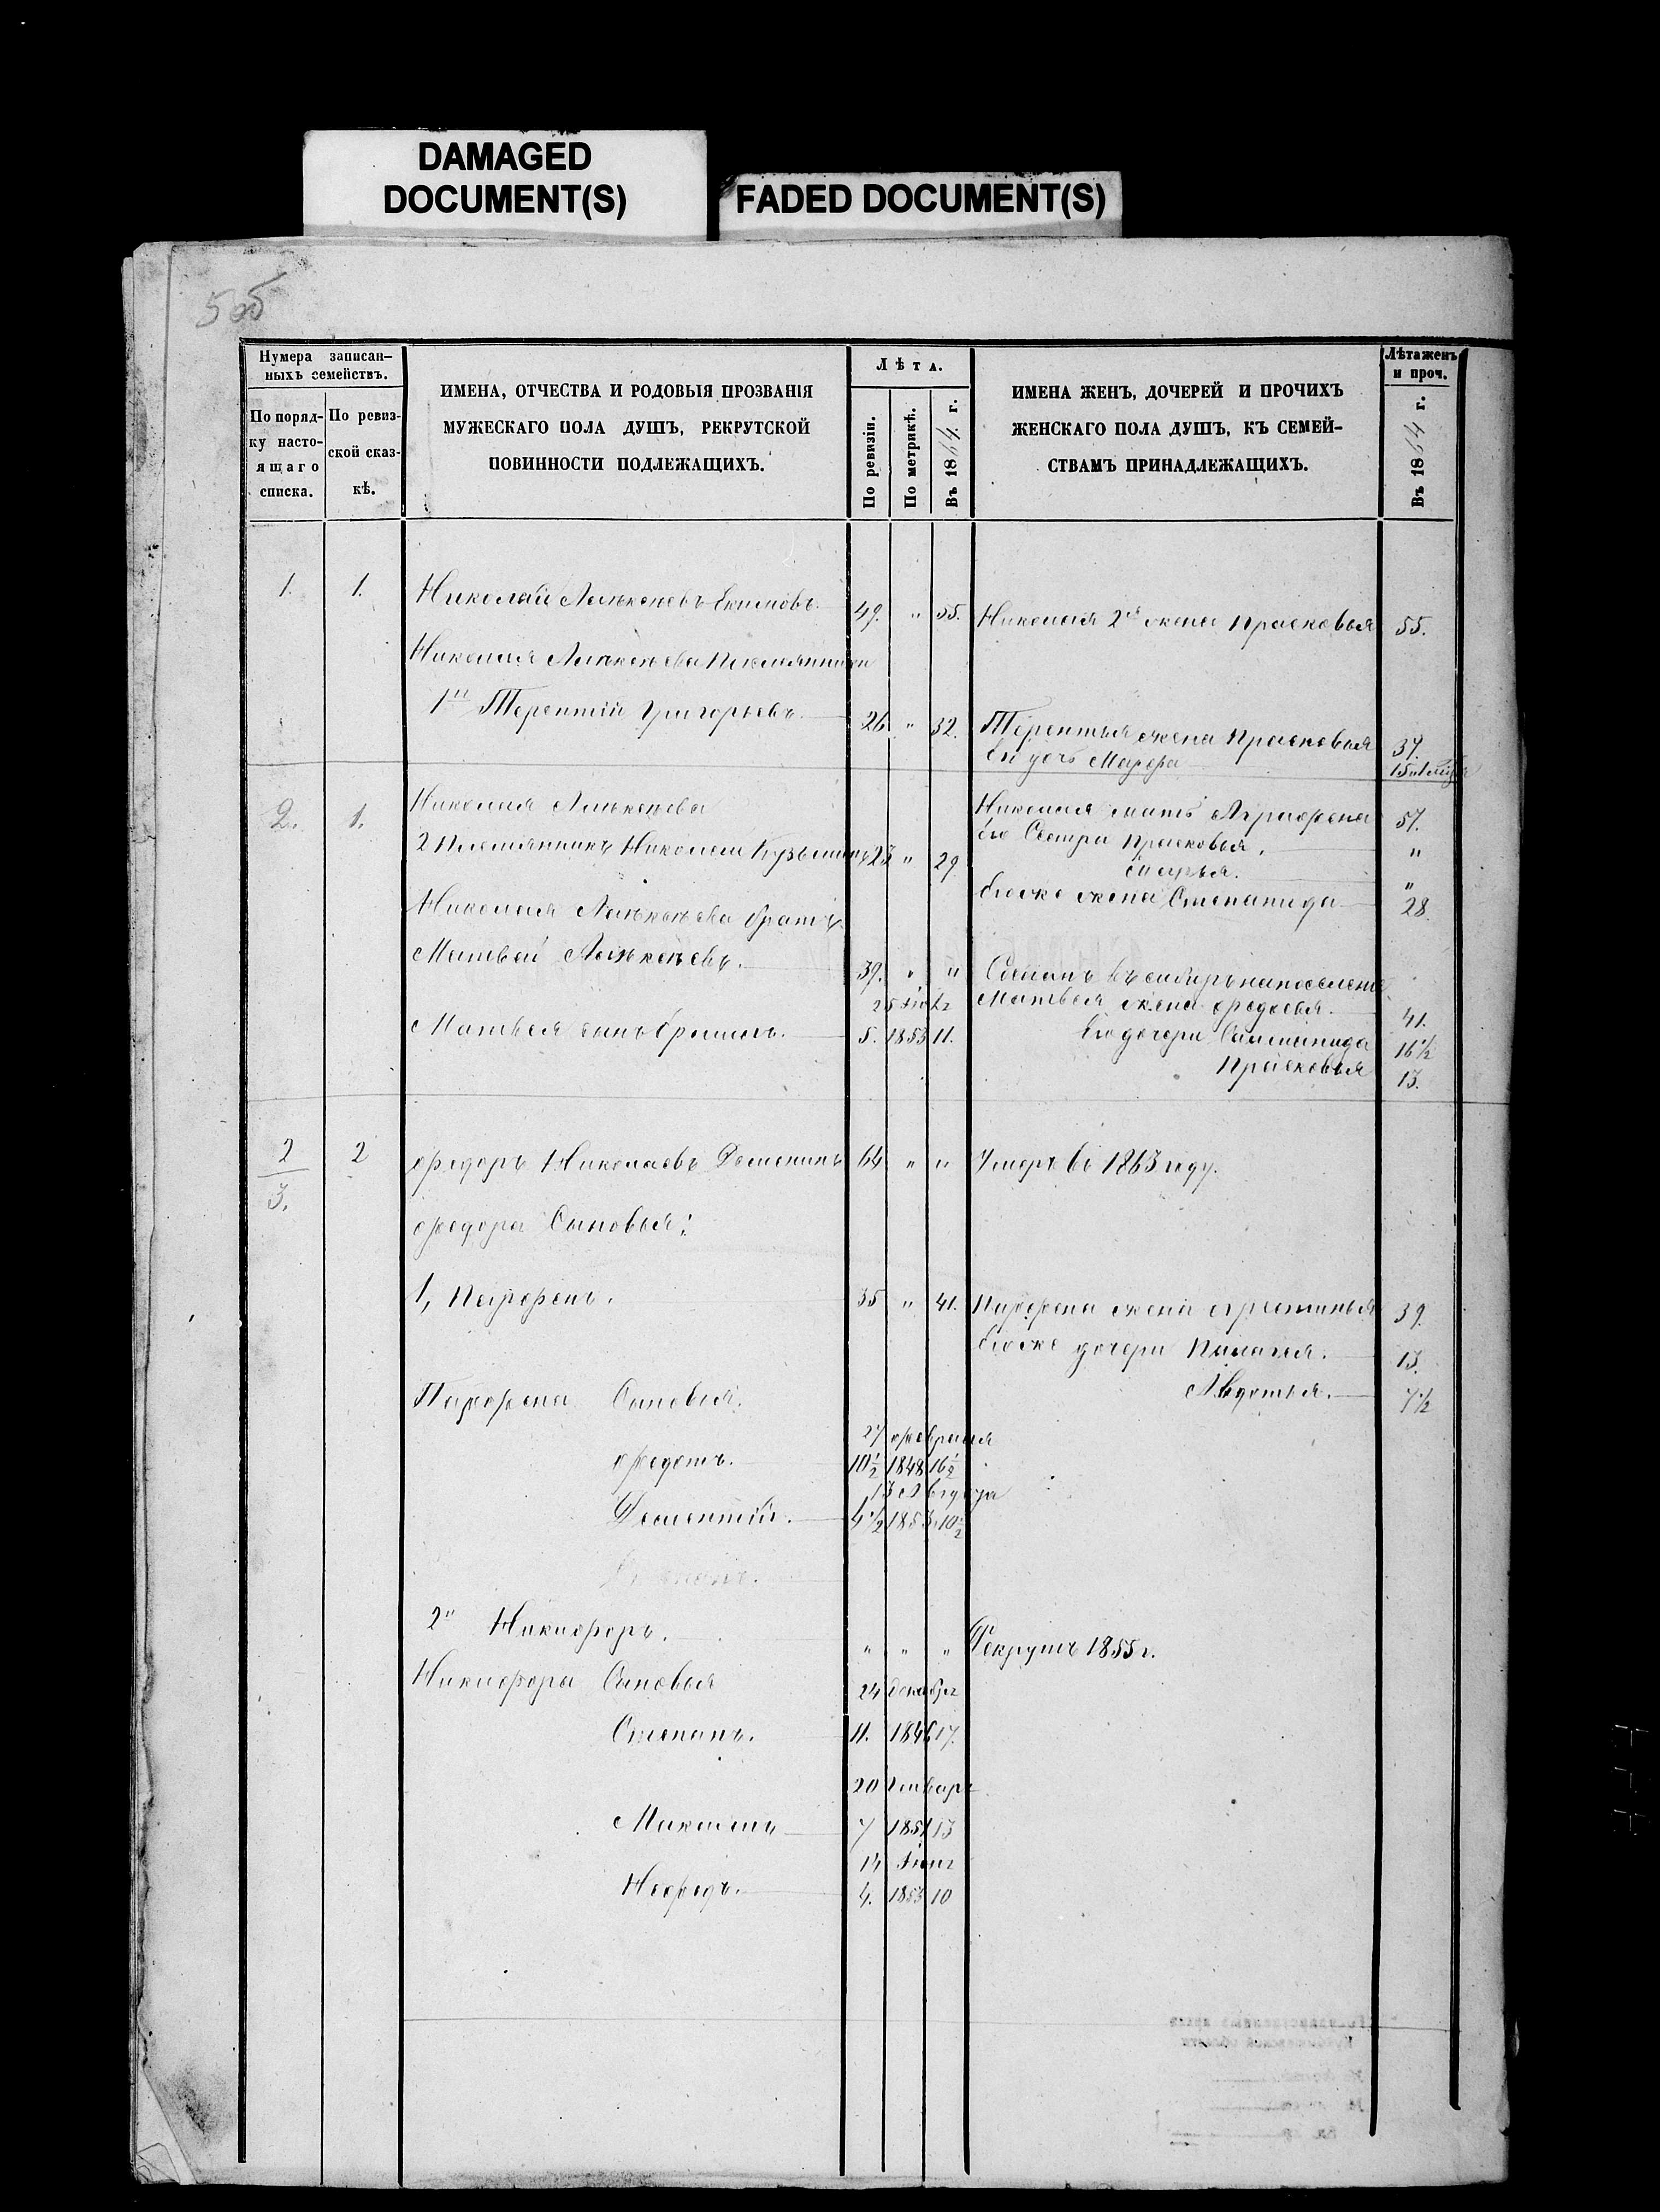 DAMAGED
DOCUMENT(S)
FADED DOCUMENT(S)
5об
Нумера записан-
ныхъ семействъ.
По поряд-
ку насто-
ящаго
списка.
По ревиз-
ской сказ-
кѣ.
ИМЕНА, ОТЧЕСТВА И РОДОВЫЯ ПРОЗВАНІЯ
МУЖЕСКАГО ПОЛА ДУШЪ, РЕКРУТСКОЙ
ПОВИННОСТИ ПОДЛЕЖАЩИХЪ.
Лѣта.
По ревизіи.
По метрикѣ.
Въ 1864 г.
ИМЕНА ЖЕНЪ, ДОЧЕРЕЙ И ПРОЧИХЪ
ЖЕНСКАГО ПОЛА ДУШЪ, КЪ СЕМЕЙ-
СТВАМЪ ПРИНАДЛЕЖАЩИХЪ.
Лѣта женъ
и проч.
Въ 1864 г.
1. 1. Николай Алексѣевъ Екимовъ 49. " 55. Николая 2я жена Прасковья 55.
Николая Алексѣева Племянники
1й Терентій Григорьевъ 26 " 32. Терентья жена Прасковья 37.
Ея дочь Марфа
2. 1. Николая Алексѣева Николая мать Аграфена 57.
2 Племянникъ Николай Кузьминъ 23 " 29 Его Сестры Прасковья. "
Марья. "
Николая Алексѣева братъ Егоже жена Степанида 28.
Матвей Алексѣевъ. 39. " " Сосланъ въ сибирь на поселение
25 Матвея жена Федосья. 41.
Матвея сынъ 5. 1853 11. Его дочери Степанида 16 1/2
Прасковья 13.
2 2 Федоръ Николаевъ 64 " " Умеръ въ 1863 году.
3.
Федора Сыновья:
1, Парфенъ. 35 " 41. Парфена жена 39.
Егоже дочери Палагея. 13.
Парфена Сыновья. Авдотья. 7 1/2
27 февраля
Федотъ. 10 1/2 1848 16 1/2
13
Дементій. 4 1/2 1853 10 1/2
2й Никифоръ. " " " Рекрутъ 1855 г.
Никифора Сыновья 24 декабря
Степанъ. 11. 1846 17.
20 Января
Максимъ 7 1851 13
14
Нефедъ. 4. 1853 10